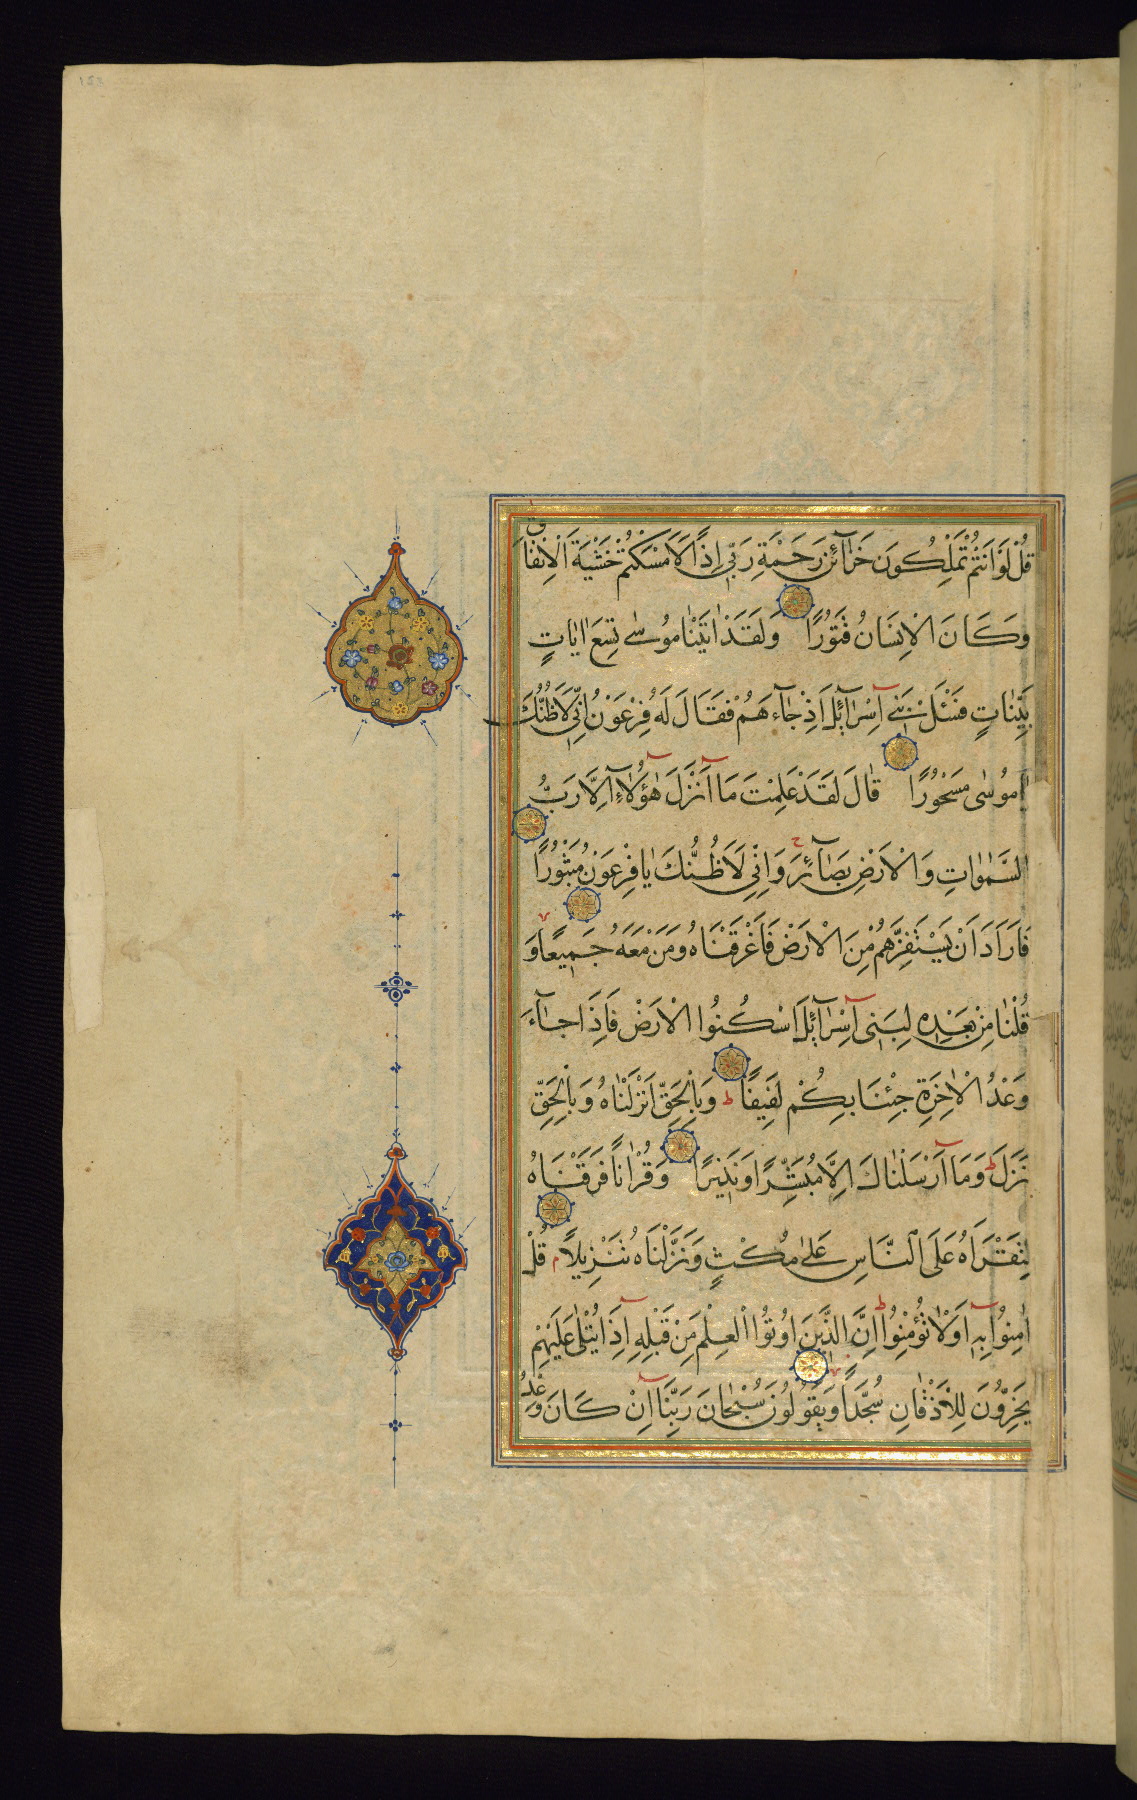 قُلْ لَوْ اَنْتُمْ تَمْلِكُونَ خَزَآئِنَ رَحْمَةِ رَبّٖى اِذًا لَاَمْسَكْتُمْ خَشْيَةَ الْاِنْفَاقِ
وَكَانَ الْاِنْسَانُ قَتُورًا وَلَقَدْ اٰتَيْنَا مُوسٰى تِسْعَ اٰيَاتٍ
بَيِّنَاتٍ فَسْئَلْ بَنٖى اِسْرَآئٖلَ اِذْ جَآءَهُمْ فَقَالَ لَهُ فِرْعَوْنُ اِنّٖى لَاَظُنُّكَ
يَا مُوسٰى مَسْحُورًا قَالَ لَقَدْ عَلِمْتَ مَا اَنْزَلَ هٰؤُلَآءِ اِلَّا رَبُّ
السَّمٰوَاتِ وَالْاَرْضِ بَصَآئِرَ وَاِنّٖى لَاَظُنُّكَ يَا فِرْعَوْنُ مَثْبُورًا
فَاَرَادَ اَنْ يَسْتَفِزَّهُمْ مِنَ الْاَرْضِ فَاَغْرَقْنَاهُ وَمَنْ مَعَهُ جَمٖيعًا وَ
قُلْنَا مِنْ بَعْدِهٖ لِبَنٖى اِسْرَآئٖلَ اسْكُنُوا الْاَرْضَ فَاِذَا جَآءَ
وَعْدُ الْاٰخِرَةِ جِئْنَا بِكُمْ لَفٖيفًا ط وَبِالْحَقِّ اَنْزَلْنَاهُ وَبِالْحَقِّ
نَزَلَ ط وَمَا اَرْسَلْنَاكَ اِلَّا مُبَشِّرًا وَنَذٖيرًا وَقُرْاٰنًا فَرَقْنَاهُ
لِتَقْرَاَهُ عَلَى النَّاسِ عَلٰى مُكْثٍ وَنَزَّلْنَاهُ تَنْزٖيلًا م قُلْ
اٰمِنُوا بِهٖ اَوْ لَا تُؤْمِنُوا ط اِنَّ الَّذٖينَ اُوتُوا الْعِلْمَ مِنْ قَبْلِهٖ اِذَا يُتْلٰى عَلَيْهِمْ
يَخِرُّونَ لِلْاَذْقَانِ سُجَّدًا وَيَقُولُونَ سُبْحَانَ رَبِّنَا اِنْ كَانَ وَعْدُ